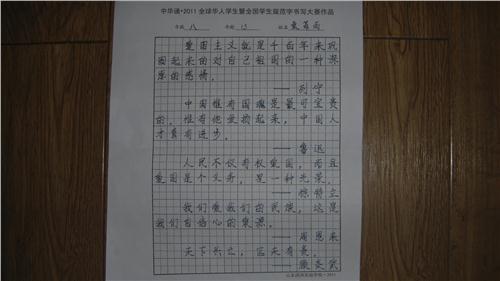 中华诵•2011全球华人学生暨全国学生规范字书写大赛作品
年级 八 年龄 13 姓名
爱国主义就是千百年来巩
固起来的对自己祖国的一种深
厚的感情。
——列宁
中国惟有国魂是最可宝贵
的，惟有他发扬起来，中国人
才真有进步。
——鲁迅
人民不仅有权爱国，而且
爱国是个义务，是一种光荣。
——徐特立
我们爱我们的民族，这是
我们自信心的泉源。
——周恩来
天下兴亡，匹夫有责。
——顾炎武